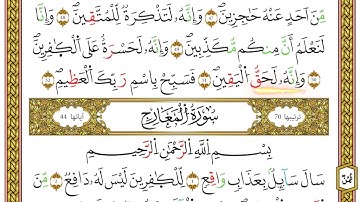 مِّنْ أَحَدٍ عَنْهُ حَٰجِزِينَ ٤٧ وَإِنَّهُۥ لَتَذْكِرَةٌ لِّلْمُتَّقِينَ ٤٨ وَإِنَّا
لَنَعْلَمُ أَنَّ مِنكُم مُّكَذِّبِينَ ٤٩ وَإِنَّهُۥ لَحَسْرَةٌ عَلَى ٱلْكَٰفِرِينَ
٥٠ وَإِنَّهُۥ لَحَقُّ ٱلْيَقِينِ ٥١ فَسَبِّحْ بِٱسْمِ رَبِّكَ ٱلْعَظِيمِ ٥٢
ترتيبها 70 سُورَةُ ٱلْمَعَارِجِ آياتها 44
بِسْمِ ٱللَّهِ ٱلرَّحْمَٰنِ ٱلرَّحِيمِ
سَأَلَ سَآئِلٌۢ بِعَذَابٍ وَاقِعٍ ١ لِّلْكَٰفِرِينَ لَيْسَ لَهُۥ دَافِعٌ ٢ مِّنَ
ثمن